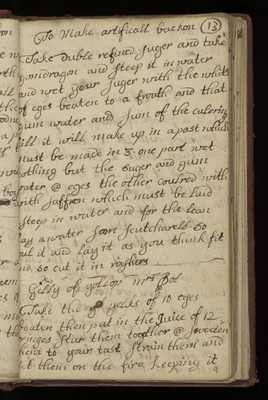 To Make artificall backon (13)
Take duble refined suger and take
gomdragon and steep it in water
and wet your suger with the whits
of eges beaten to a froath and that
gum water and sum of the culering
till it will make up in a past which
must be made in 3 one part wet
nothing but the suger and gum
water @ eges the other coulred with
with saffron which must be laid
steep in water and for the lean
lay a water
roul it and lay it as you think fit
and so cut it in rashers
Gilly of
Take the yelks of 10 eges
beaten then put in the Juice of 12
oringes stur them together @ sweeten
them to your tast strain them and
set them on the fire keeping it